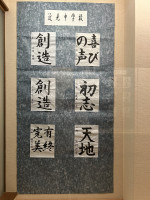 中学校
喜び
の声
初志
天地
創造
創造
有終
完美